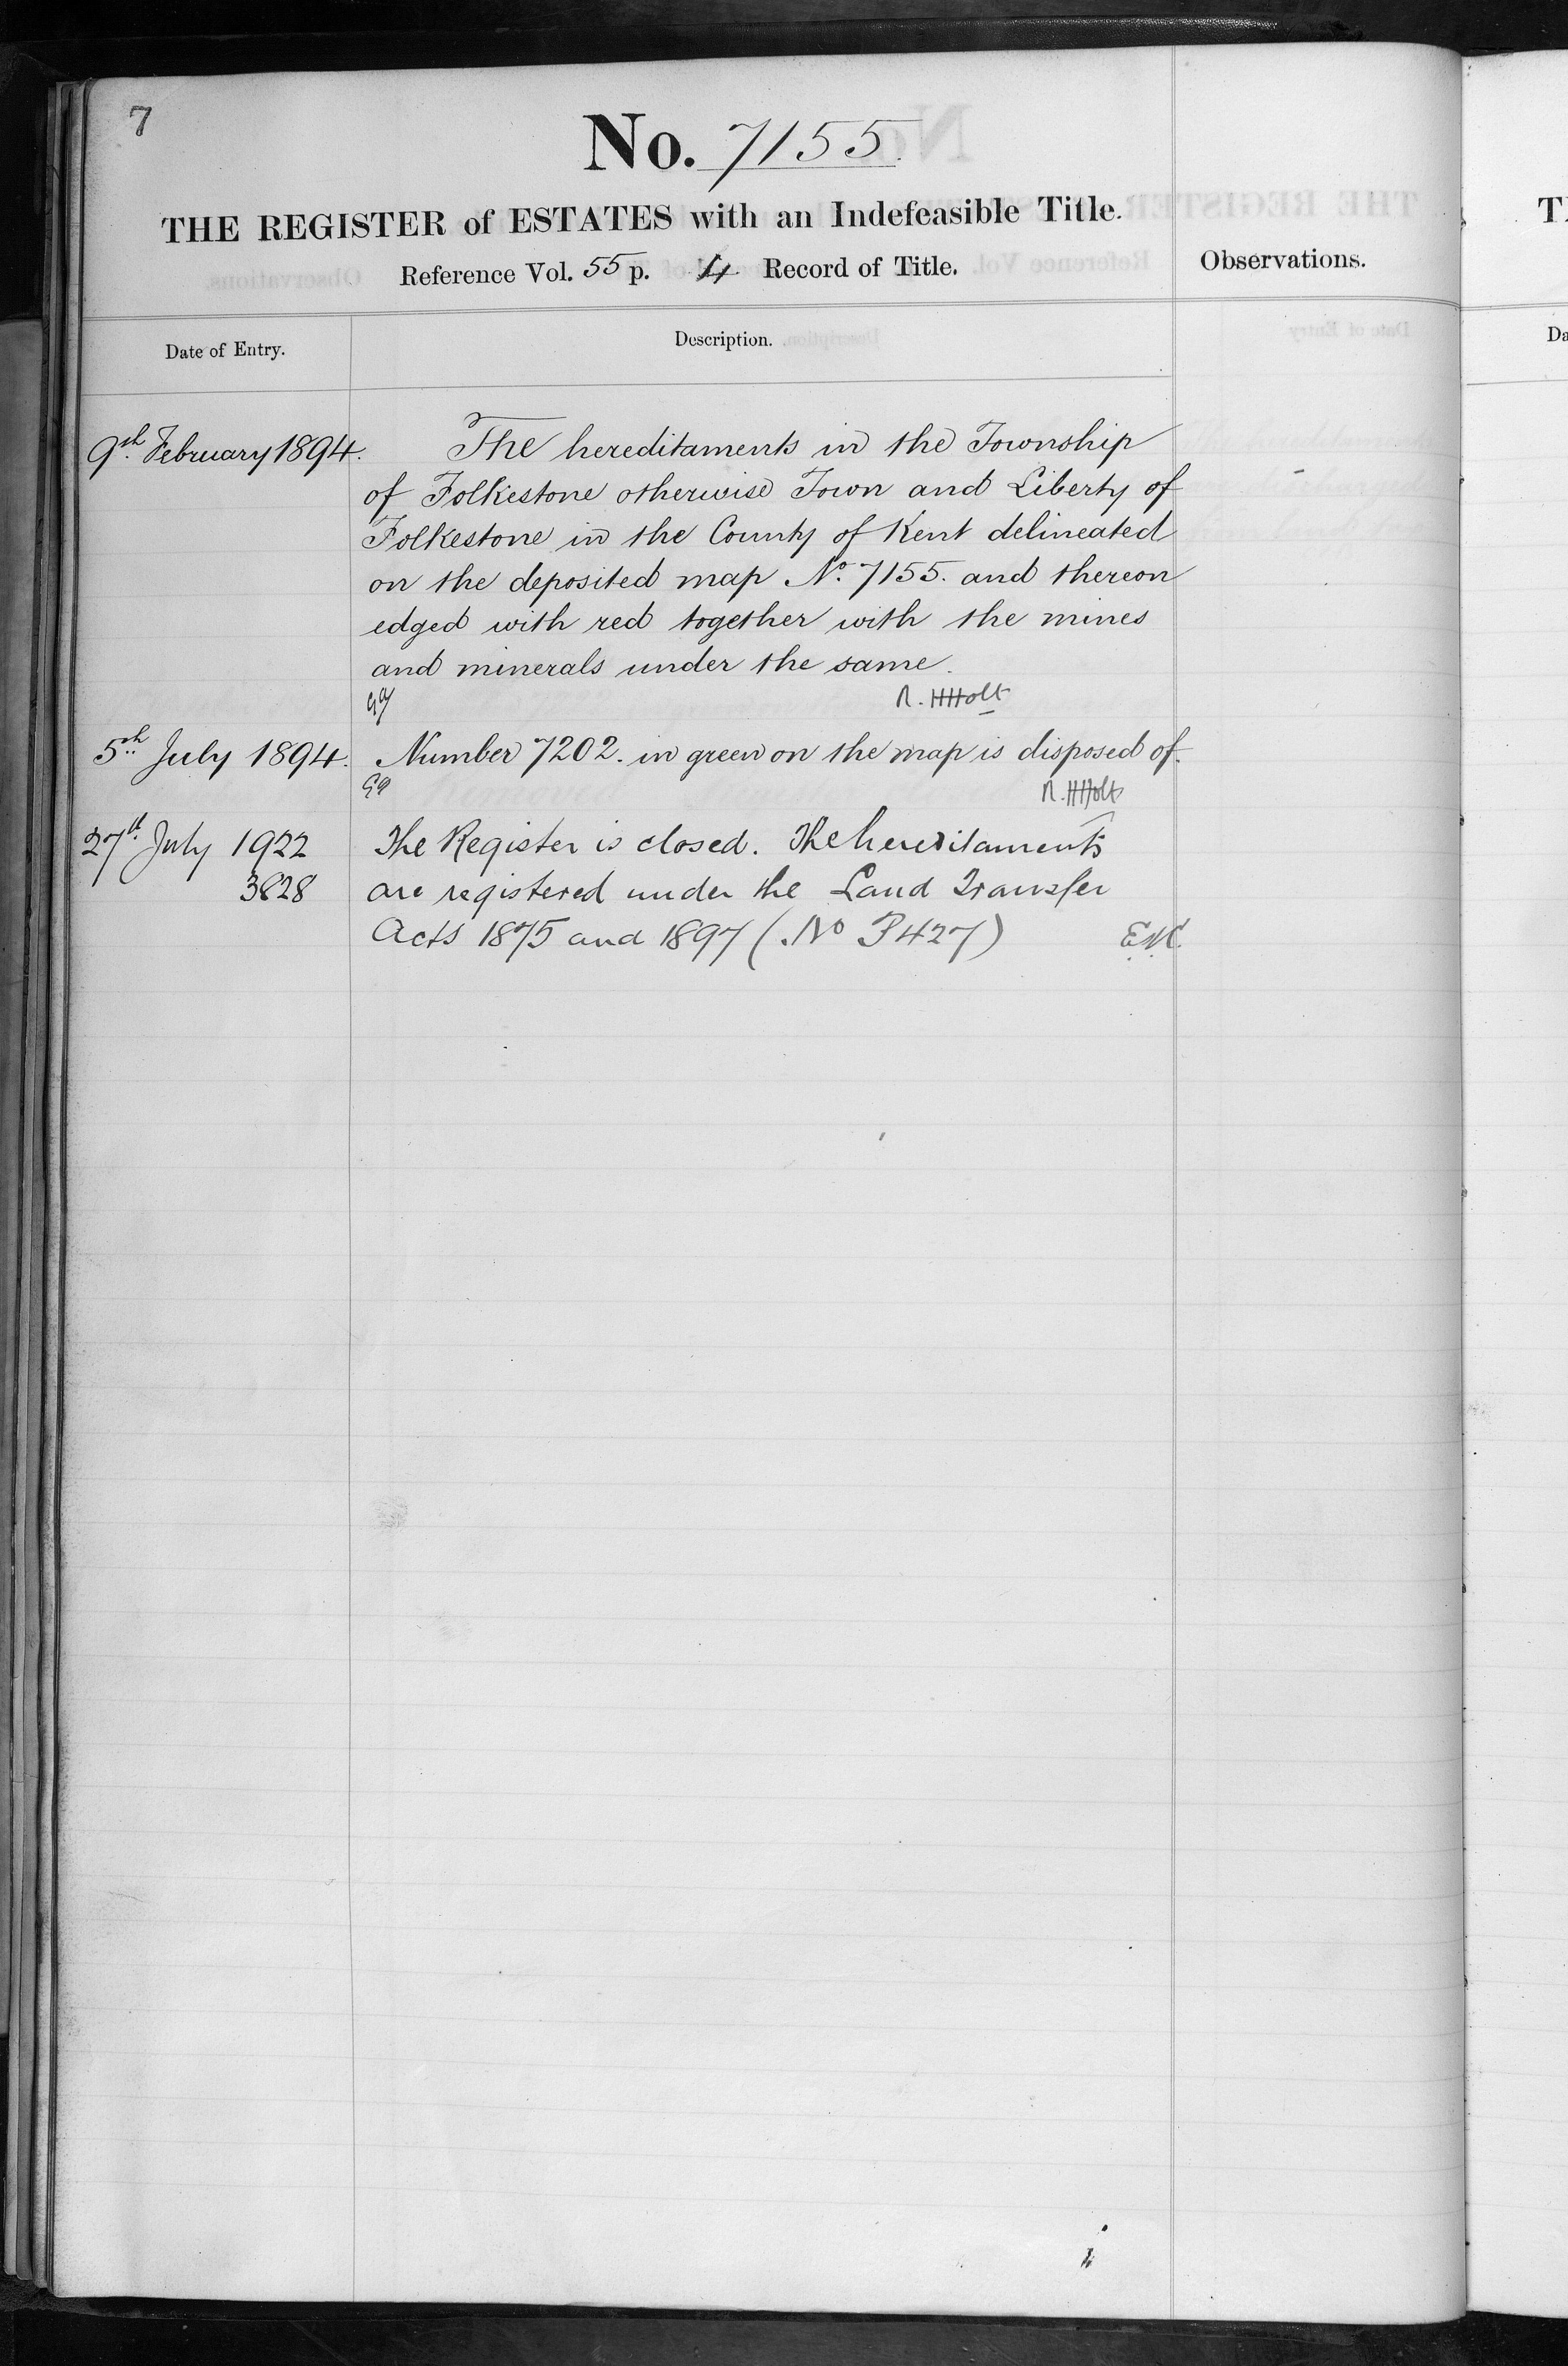 7
No. 7155.
THE REGISTER of ESTATES with an Indefeasible Title.
Reference Vol. 55 p. 4 Record of Title.
Observations.
Date of Entry.
Description.
9th February 1894.
The hereditaments in the Township
of Folkestone otherwise Town and Liberty of
Folkestone in the County of Kent delineated
on the deposited map No. 7155. and thereon
edged with red together with the mines
and minerals under the same.
R. H Holt
5th July 1894.
Number 7202. in green on the map is disposed of.
R. H Holt
27th July 1922
3828
The Register is closed. The hereditaments
are registered under the Land Transfer
Acts 1875 and 1897 (No P427)